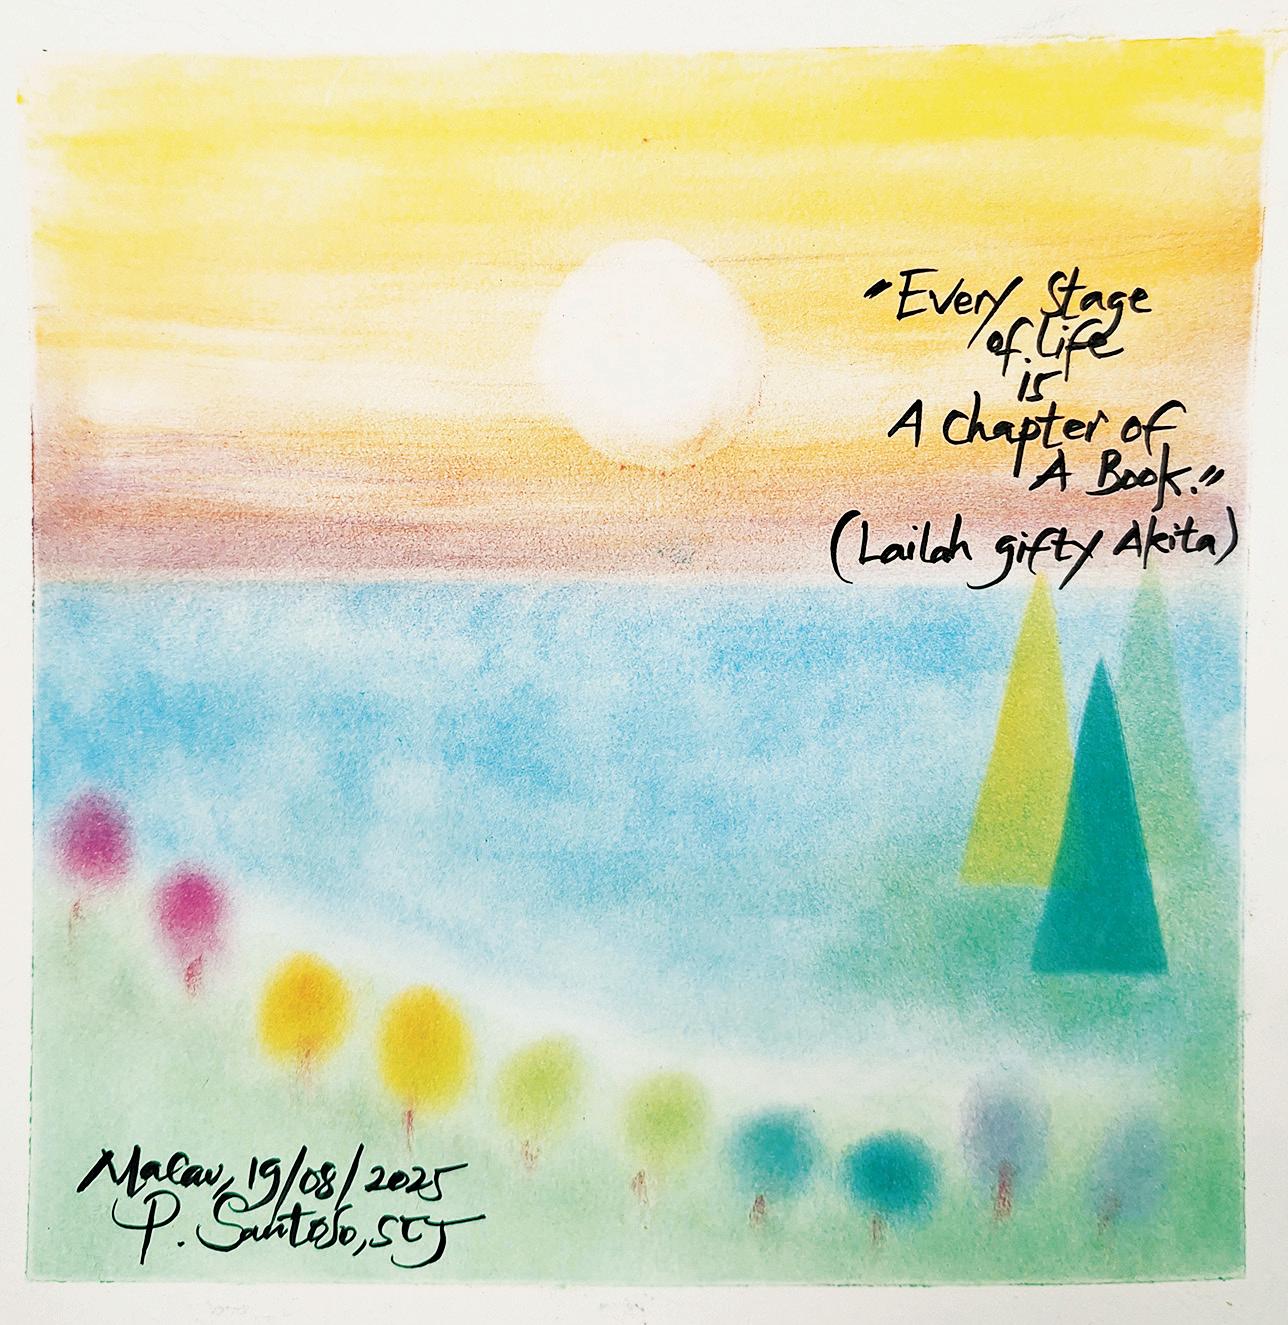 "Every Stage
of life
is
A Chapter of
A Book."
(Lailah gifty Akita)
Macau, 19/08/2025
P. Santoso, SCJ